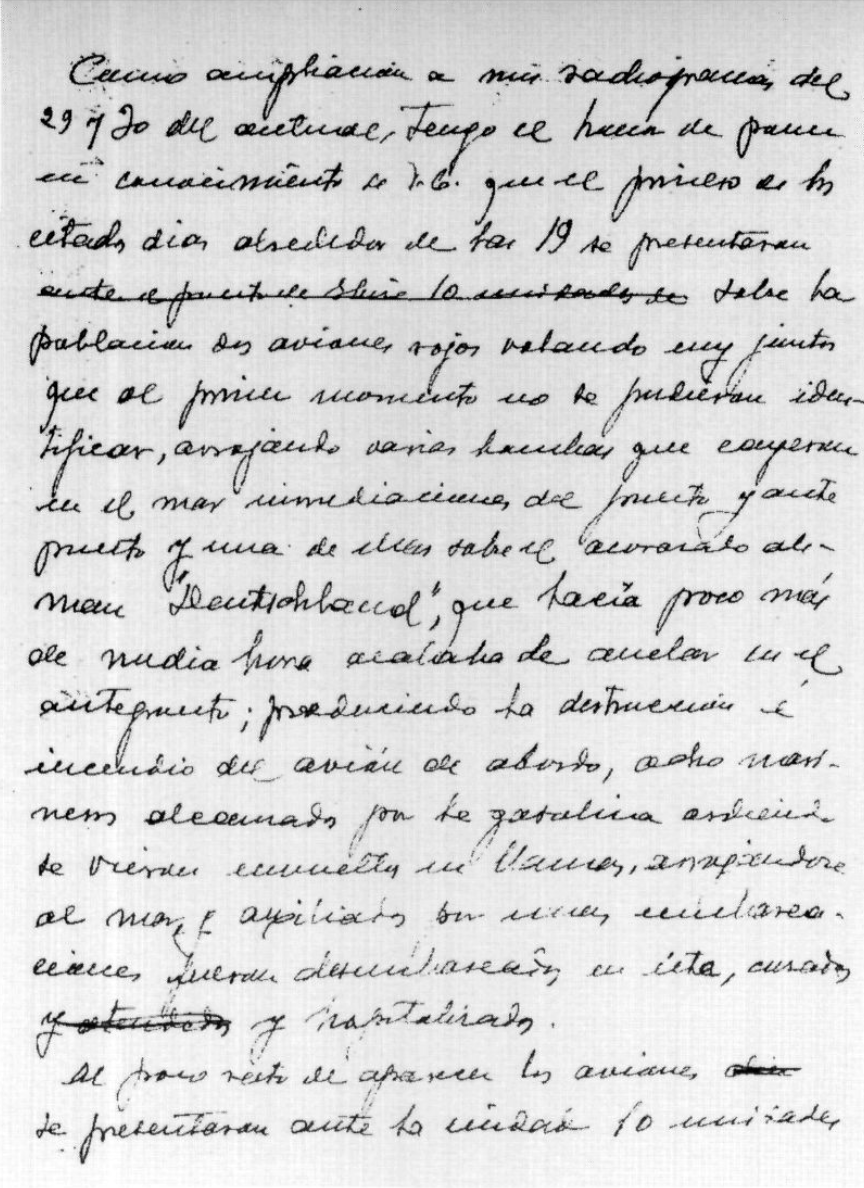 Como ampliación a mis radiogramas del
29 y 30 del actual, Tengo el honor de poner
en conocimiento de V.E. que el primero de los
citados dias alrededor de las 19 se presentaron
ante el puerto de Ibiza 10 unidades de sobre la
poblacion dos aviones rojos volando muy juntos
que al primer momento no se pudieron iden-
tificar, arrojando varias bombas que cayeron
en el mar inmediaciones del puerto y ante
puerto y una de ellas sobre el acorazado ale-
man "Deutschland", que hacía poco más
de media hora acababa de anclar en el
antepuerto; produciendo la destruccion é
incendio del avión de abordo, ocho mari-
neros alcanzados por la gasolina ardiendo
se vieron envueltos en llamas, arrojandose
al mar, y auxiliados por unas embarca-
ciones fueron desembarcados en ésta, curados
y atendidos y hospitalizados.
Al poco rato de aparecer los aviones
se presentaron ante la ciudad 10 unidades